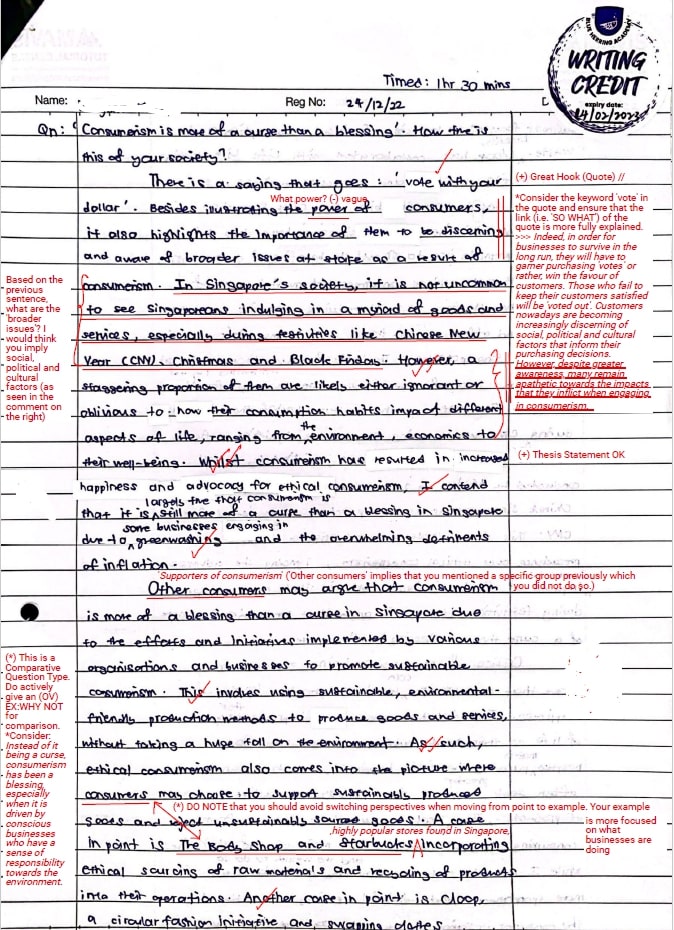 BLUE HERRING ACADEMY
WRITING
CREDIT
expiry date:
14/02/2023
Timed: 1hr 30 mins
Name:
Reg No: 24/12/22
Qn: 'Consumerism is more of a curse than a blessing'. How true is
this of your society?
There is a saying that goes: 'vote with your
What power? (-) vague
dollar'. Besides illustrating the power of consumers,
it also highlights the importance of them to be discerning
and aware of broader issues at stake as a result of
consumerism. In Singapore's society, it is not uncommon
to see Singaporeans indulging in a myriad of goods and
services, especially during festivities like Chinese New
Year (CNY), Christmas and Black Friday. However, a
staggering proportion of them are likely either ignorant or
oblivious to how their consumption habits impact different
aspects of life, ranging from the environment, economics to
their well-being. Whilst consumerism has resulted in increased
happiness and advocacy for ethical consumerism, I contend
largely true that consumerism is
that it is still more of a curse than a blessing in Singapore
some businesses engaging in
due to greenwashing and the overwhelming detriments
of inflation.
'Supporters of consumerism' ('Other consumers' implies that you mentioned a specific group previously which
you did not do so.)
Other consumers may argue that consumerism
is more of a blessing than a curse in Singapore due
to the efforts and initiatives implemented by various
organisations and businesses to promote sustainable
consumerism. This involves using sustainable, environmental-
friendly production methods to produce goods and services,
without taking a huge toll on the environment. As such,
ethical consumerism also comes into the picture where
consumers may choose to support sustainably produced
(*) DO NOTE that you should avoid switching perspectives when moving from point to example. Your example
is more focused
on what
businesses are
doing
goods and reject unsustainably sourced goods. A case
,highly popular stores found in Singapore,
in point is The Body Shop and Starbucks incorporating
ethical sourcing of raw materials and recycling of products
into their operations. Another case in point is Cloop,
a circular fashion initiative, and swapping clothes
(+) Great Hook (Quote) //
*Consider the keyword 'vote' in
the quote and ensure that the
link (i.e. 'SO WHAT') of the
quote is more fully explained.
>>> Indeed, in order for
businesses to survive in the
long run, they will have to
garner purchasing 'votes' or
rather, win the favour of
customers. Those who fail to
keep their customers satisfied
will be 'voted out'. Customers
nowadays are becoming
increasingly discerning of
social, political and cultural
factors that inform their
purchasing decisions.
However, despite greater
awareness, many remain
apathetic towards the impacts
that they inflict when engaging
in consumerism.
(+) Thesis Statement OK
Based on the
previous
sentence,
what are the
'broader
issues'? I
would think
you imply
social,
political and
cultural
factors (as
seen in the
comment on
the right)
(*) This is a
Comparative
Question Type.
Do actively
give an (OV)
EX:WHY NOT
for
comparison.
*Consider:
Instead of it
being a curse,
consumerism
has been a
blessing,
especially
when it is
driven by
conscious
businesses
who have a
sense of
responsibility
towards the
environment.